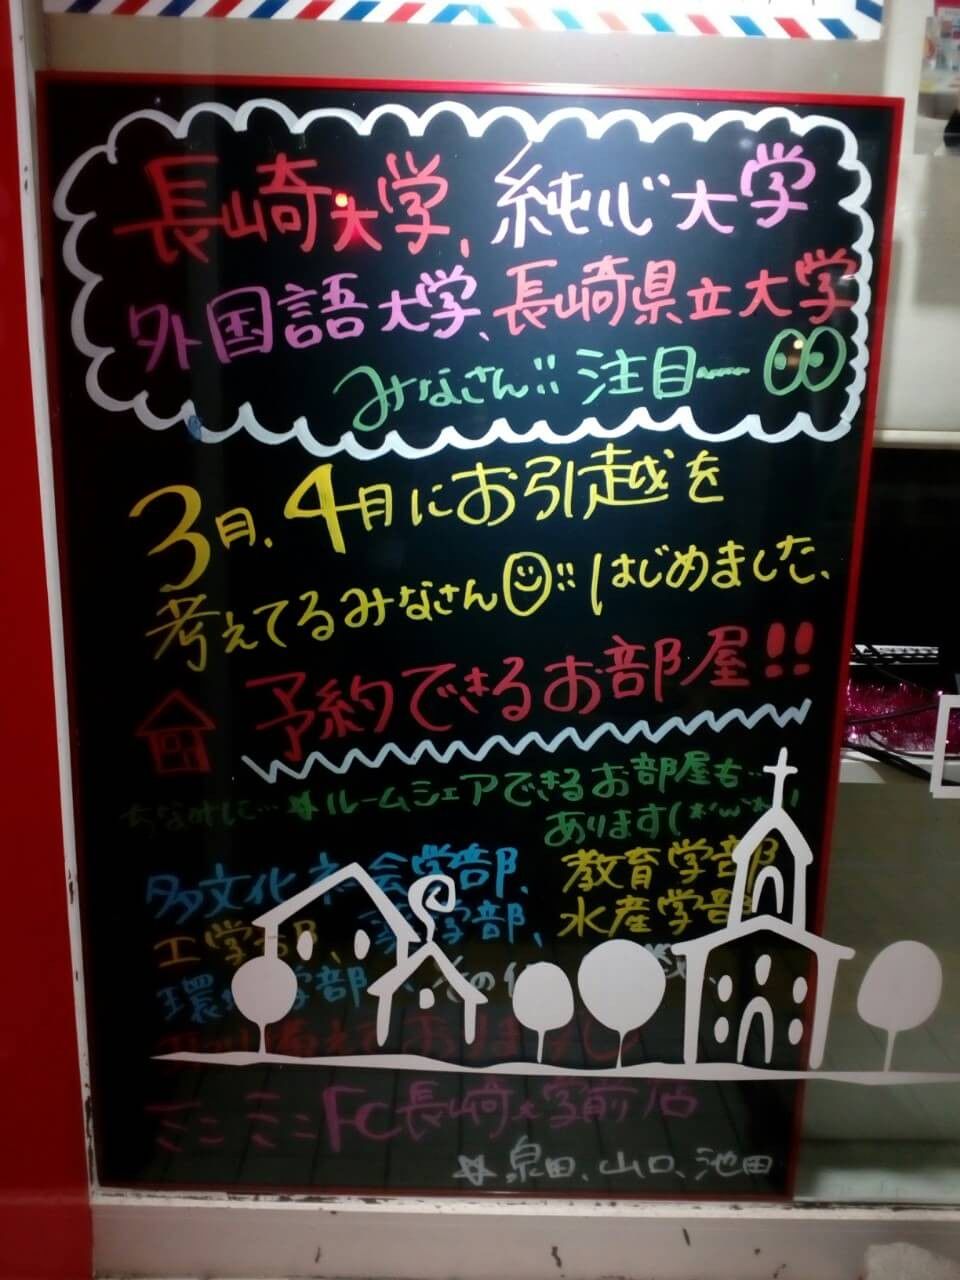 長崎大学、純心大学
外国語大学、長崎県立大学
みなさん!! 注目
3月、4月にお引越を
考えてるみなさん!! はじめました、
予約できるお部屋!!
ちなみに… ☆ルームシェアできるお部屋も…
あります(*'ω'*)
多文化社会学部、教育学部
工学部、薬学部、水産学部
環境学部、その他
ミニミニFC長崎大学前店
☆泉田、山口、池田